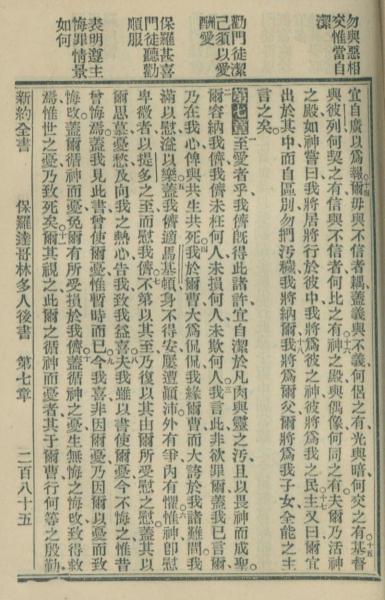 勿與惡相
交惟當自
潔
勸門徒潔
己須以愛
酬愛
保羅甚喜
門徒聽勸
順服
表明遵主
悔罪情景
如何
宜自廣以爲報十四爾毋與不信者耦蓋義與不義何侶之有光與暗何交之有十五基督
與彼列何契之有信與不信者何比之有十六神之殿與偶像何同之有夫爾乃活神
之殿如神嘗曰我將居將行於彼中我將爲彼之神彼將爲我之民十七主又曰爾宜
出於其中而自區別勿捫污穢我將納爾十八我將爲爾父爾將爲我子女全能之主
言之矣
第七章一至愛者乎我儕旣得此諸許宜自潔於凡肉與靈之污且以畏神而成聖
二爾容納我儕我儕未枉何人未損何人未欺何人三我言此非欲罪爾蓋我已言爾
乃在我心俾與共生共死四我於爾曹大爲侃侃我緣爾曹而大誇於我諸難間我
滿以慰溢以樂五蓋我儕適馬基頓身不得安屢遭顚沛外有爭內有懼六惟神卽慰
卑微者以提多之至而慰我儕七不第以其至乃復以其由爾所受慰之慰蓋其以
爾思慕憂愁及向我之熱心告我致我益喜八夫我雖以書使爾憂今不悔之惟昔
曾悔焉蓋我見此書曾使爾憂惟暫時而已九今我喜非因爾憂乃因爾以憂而致
悔改蓋爾循神而憂免爾有所受損於我儕十蓋循神之憂生無悔之悔改致得救
焉惟世之憂乃致死矣十一爾其視之此爾之循神而憂者其于爾曹行何等之殷勤
新約全書 保羅達哥林多人後書 第七章 二百八十五